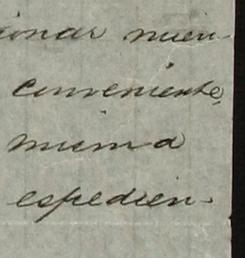 ionar mien-
conveniente,
misma
espedien-